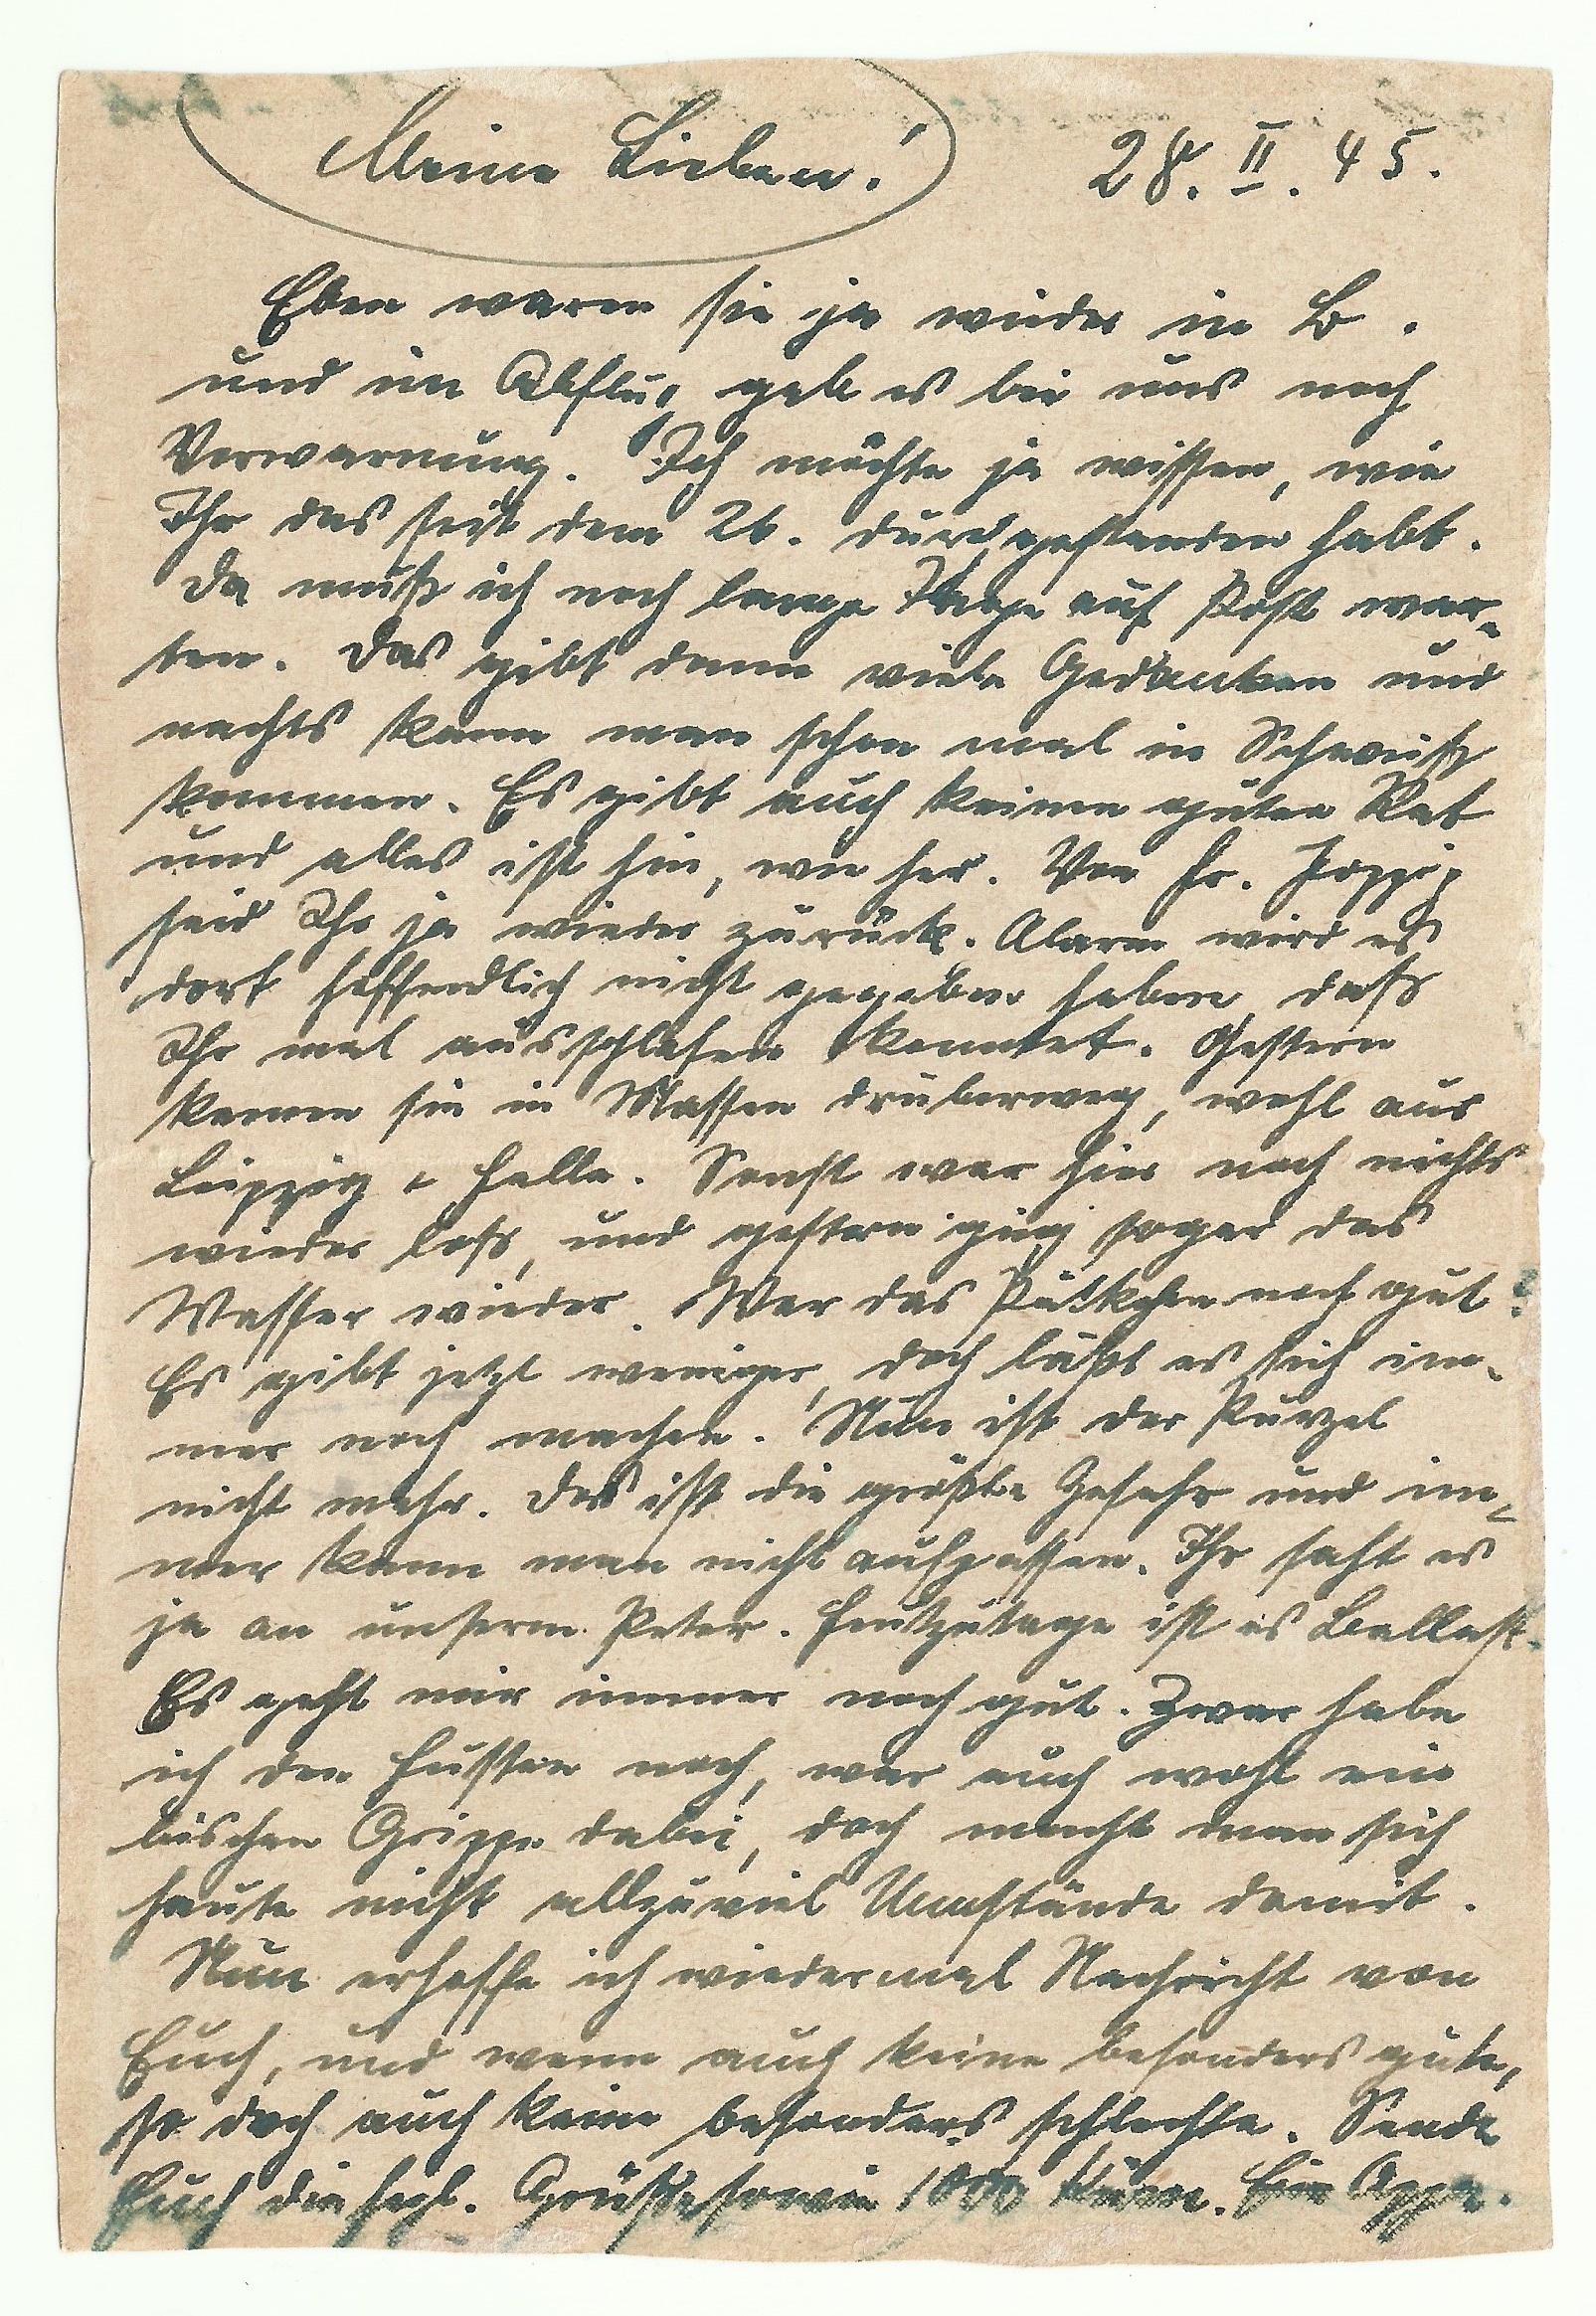 Meine Lieben! 28. II. 45.
Eben waren sie ja wieder in B.
und im Abflug gab es bei uns noch
Vorwarnung. Ich möchte ja wissen, wie
Ihr das seit dem 26. durchgestanden habt.
Da muß ich noch lange Tage auf Post war-
ten. Das gibt dann viele Gedanken und
nachts kann man schon mal in Schweiß
kommen. Es gibt auch keinen guten Rat
und alles ist hin, wie her. Von Fr.
seid Ihr ja wieder zurück. Alarm wird es
dort hoffendlich nicht gegeben haben, daß
Ihr mal ausschlafen konntet. Gestern
kamen sie in Massen drüberweg, wohl aus
Leipzig + Halle. Sonst war hier noch nichts
wieder loß, und gestern ging sogar das
Wasser wieder. War das Päckchen noch gut?
Es gibt jetzt weniger, doch läßt es sich im-
mer noch machen. Nun ist der Purzel
nicht mehr. Das ist die größte Gefahr und im-
mer kann man nicht aufpassen. Ihr saht es
ja an unserm Peter. Heutzutage ist es Ballast.
Es geht mir immer noch gut. Zwar habe
ich den Husten noch, war auch wohl ein
bischen Grippe dabei, doch macht man sich
heute nicht allzuviel Umstände damit.
Nun erhoffe ich wiedermal Nachricht von
Euch, und wenn auch keine besonders gute,
so doch auch keine besonders schlechte. Sende
Euch die hzl. Grüße sowie 1000 Küsse.